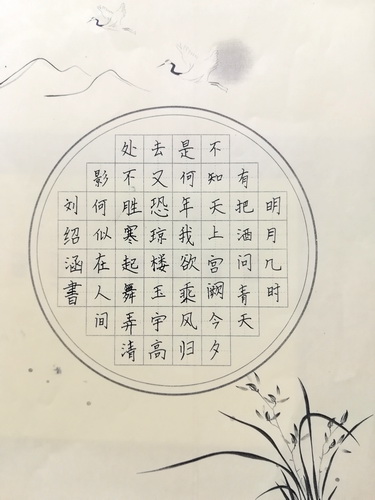 明月几时
有把酒问青天
不知天上宫阙今夕
是何年我欲乘风归
去又恐琼楼玉宇高
处不胜寒起舞弄清
影何似在人间
刘绍涵書